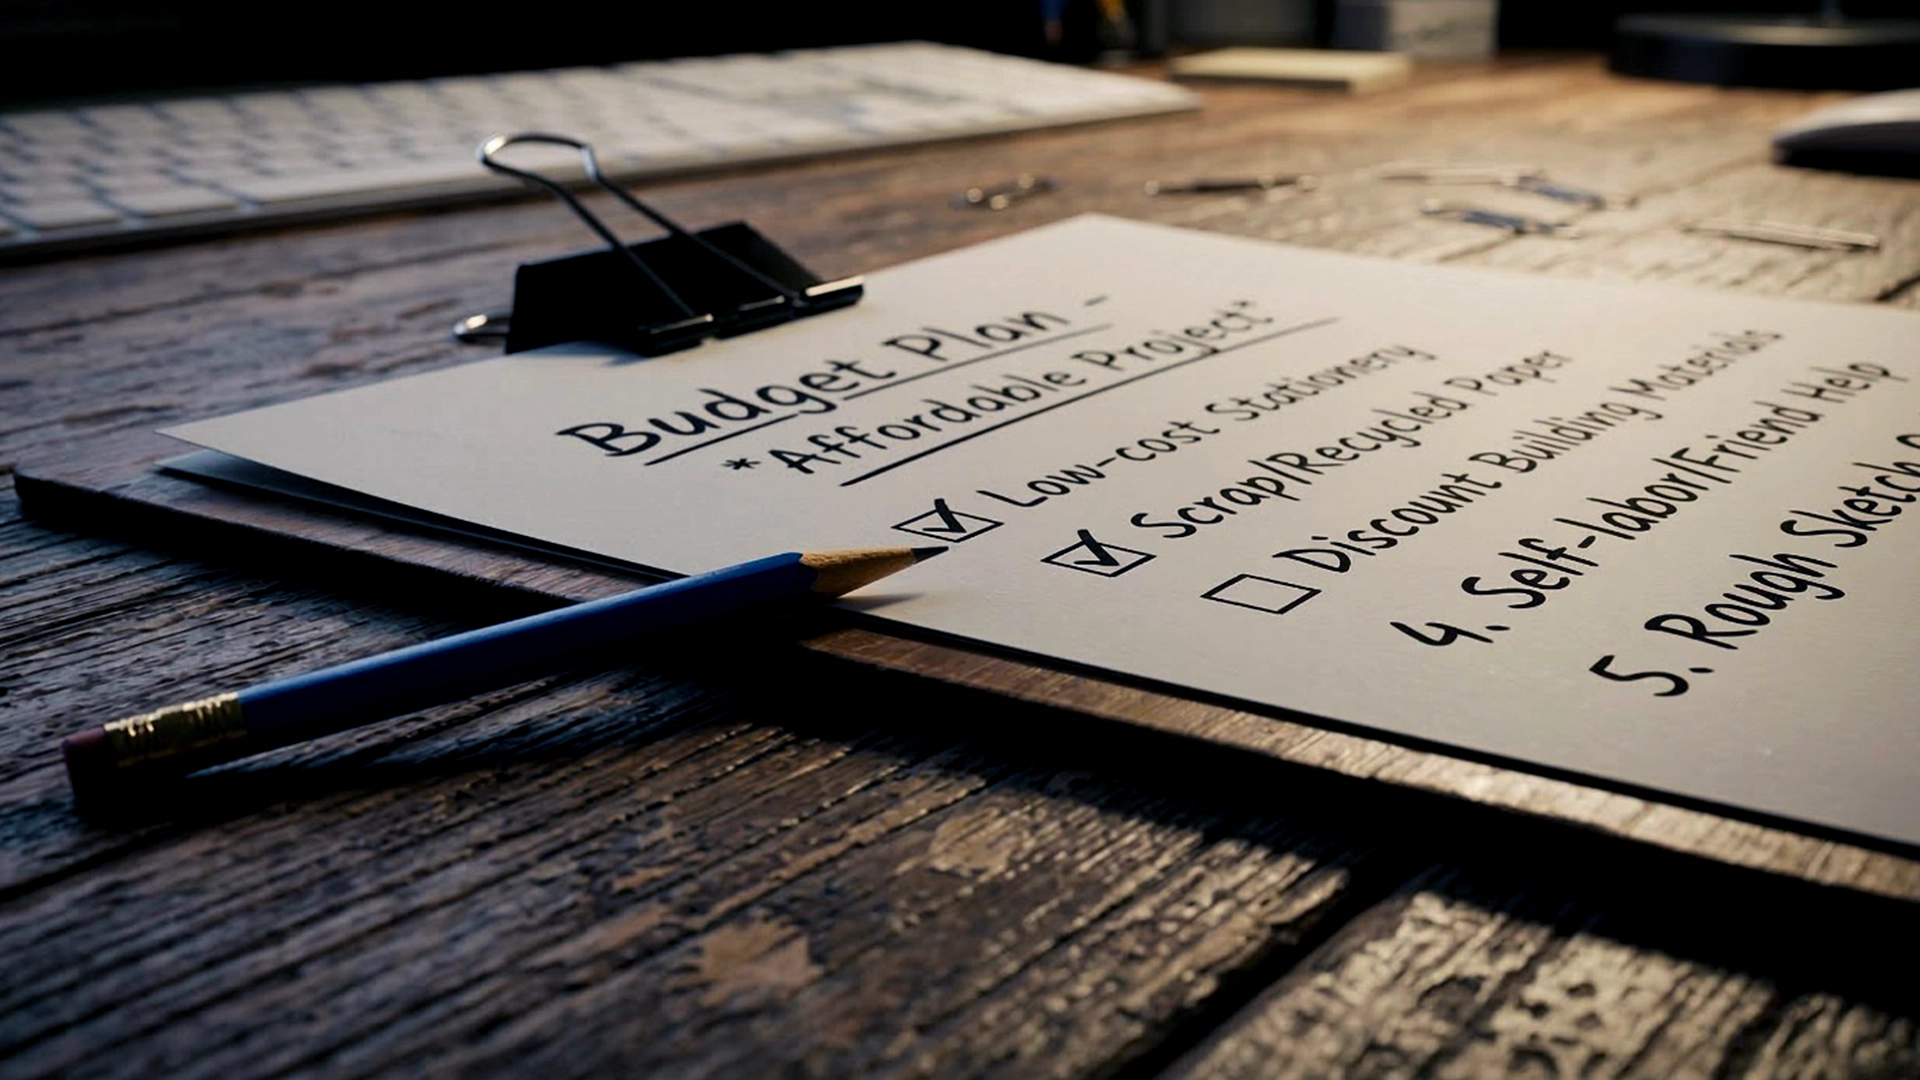 Budget Plan -
*Affordable Project*
Low-cost Stationery
Scrap/Recycled Paper
Discount Building Materials
4. Self-labor/Friend Help
5. Rough Sketch